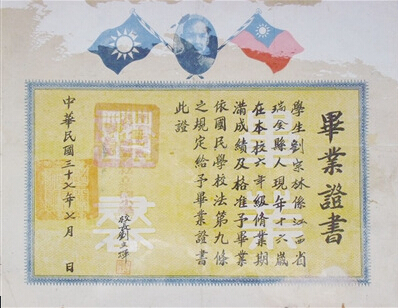 畢業證書
學生劉宗林係江西省
瑞金縣人現年十六歲
在本校六年級修業期
滿成績及格准予畢業
依國民學校法第九條
之規定給予畢業證書
此證
校長劉
中華民國三十七年七月 日